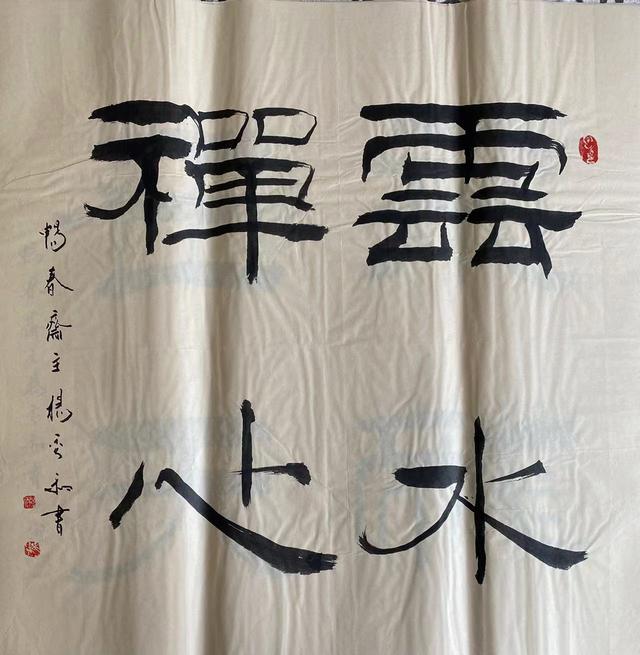 雲水
禪心
暢春齋主楊和書